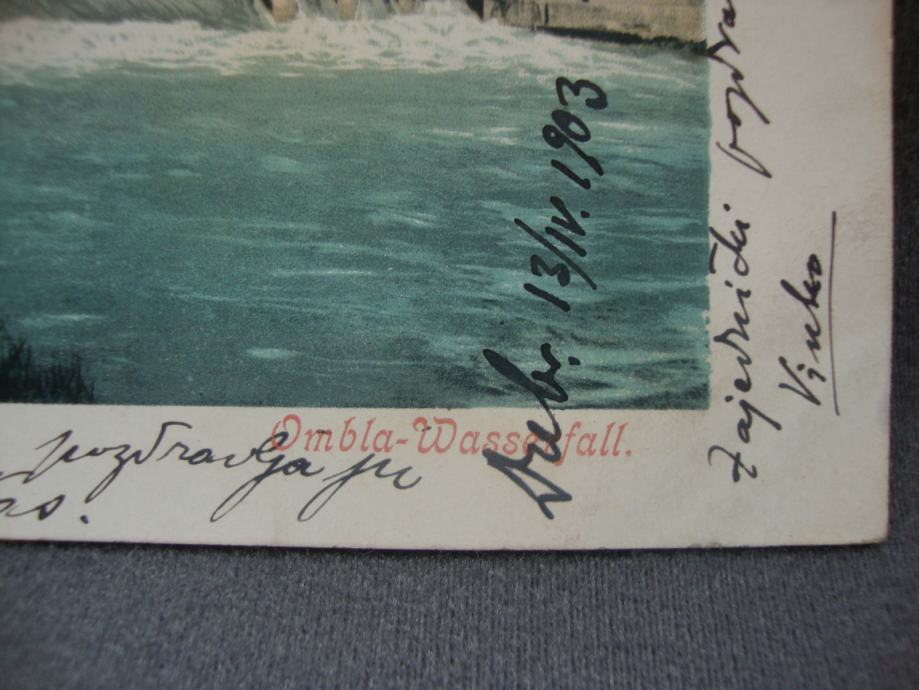 Ombla-Wasserfall.
pozdravlja ju
Dub. 13/IV. 1903
Zajednički pozdra